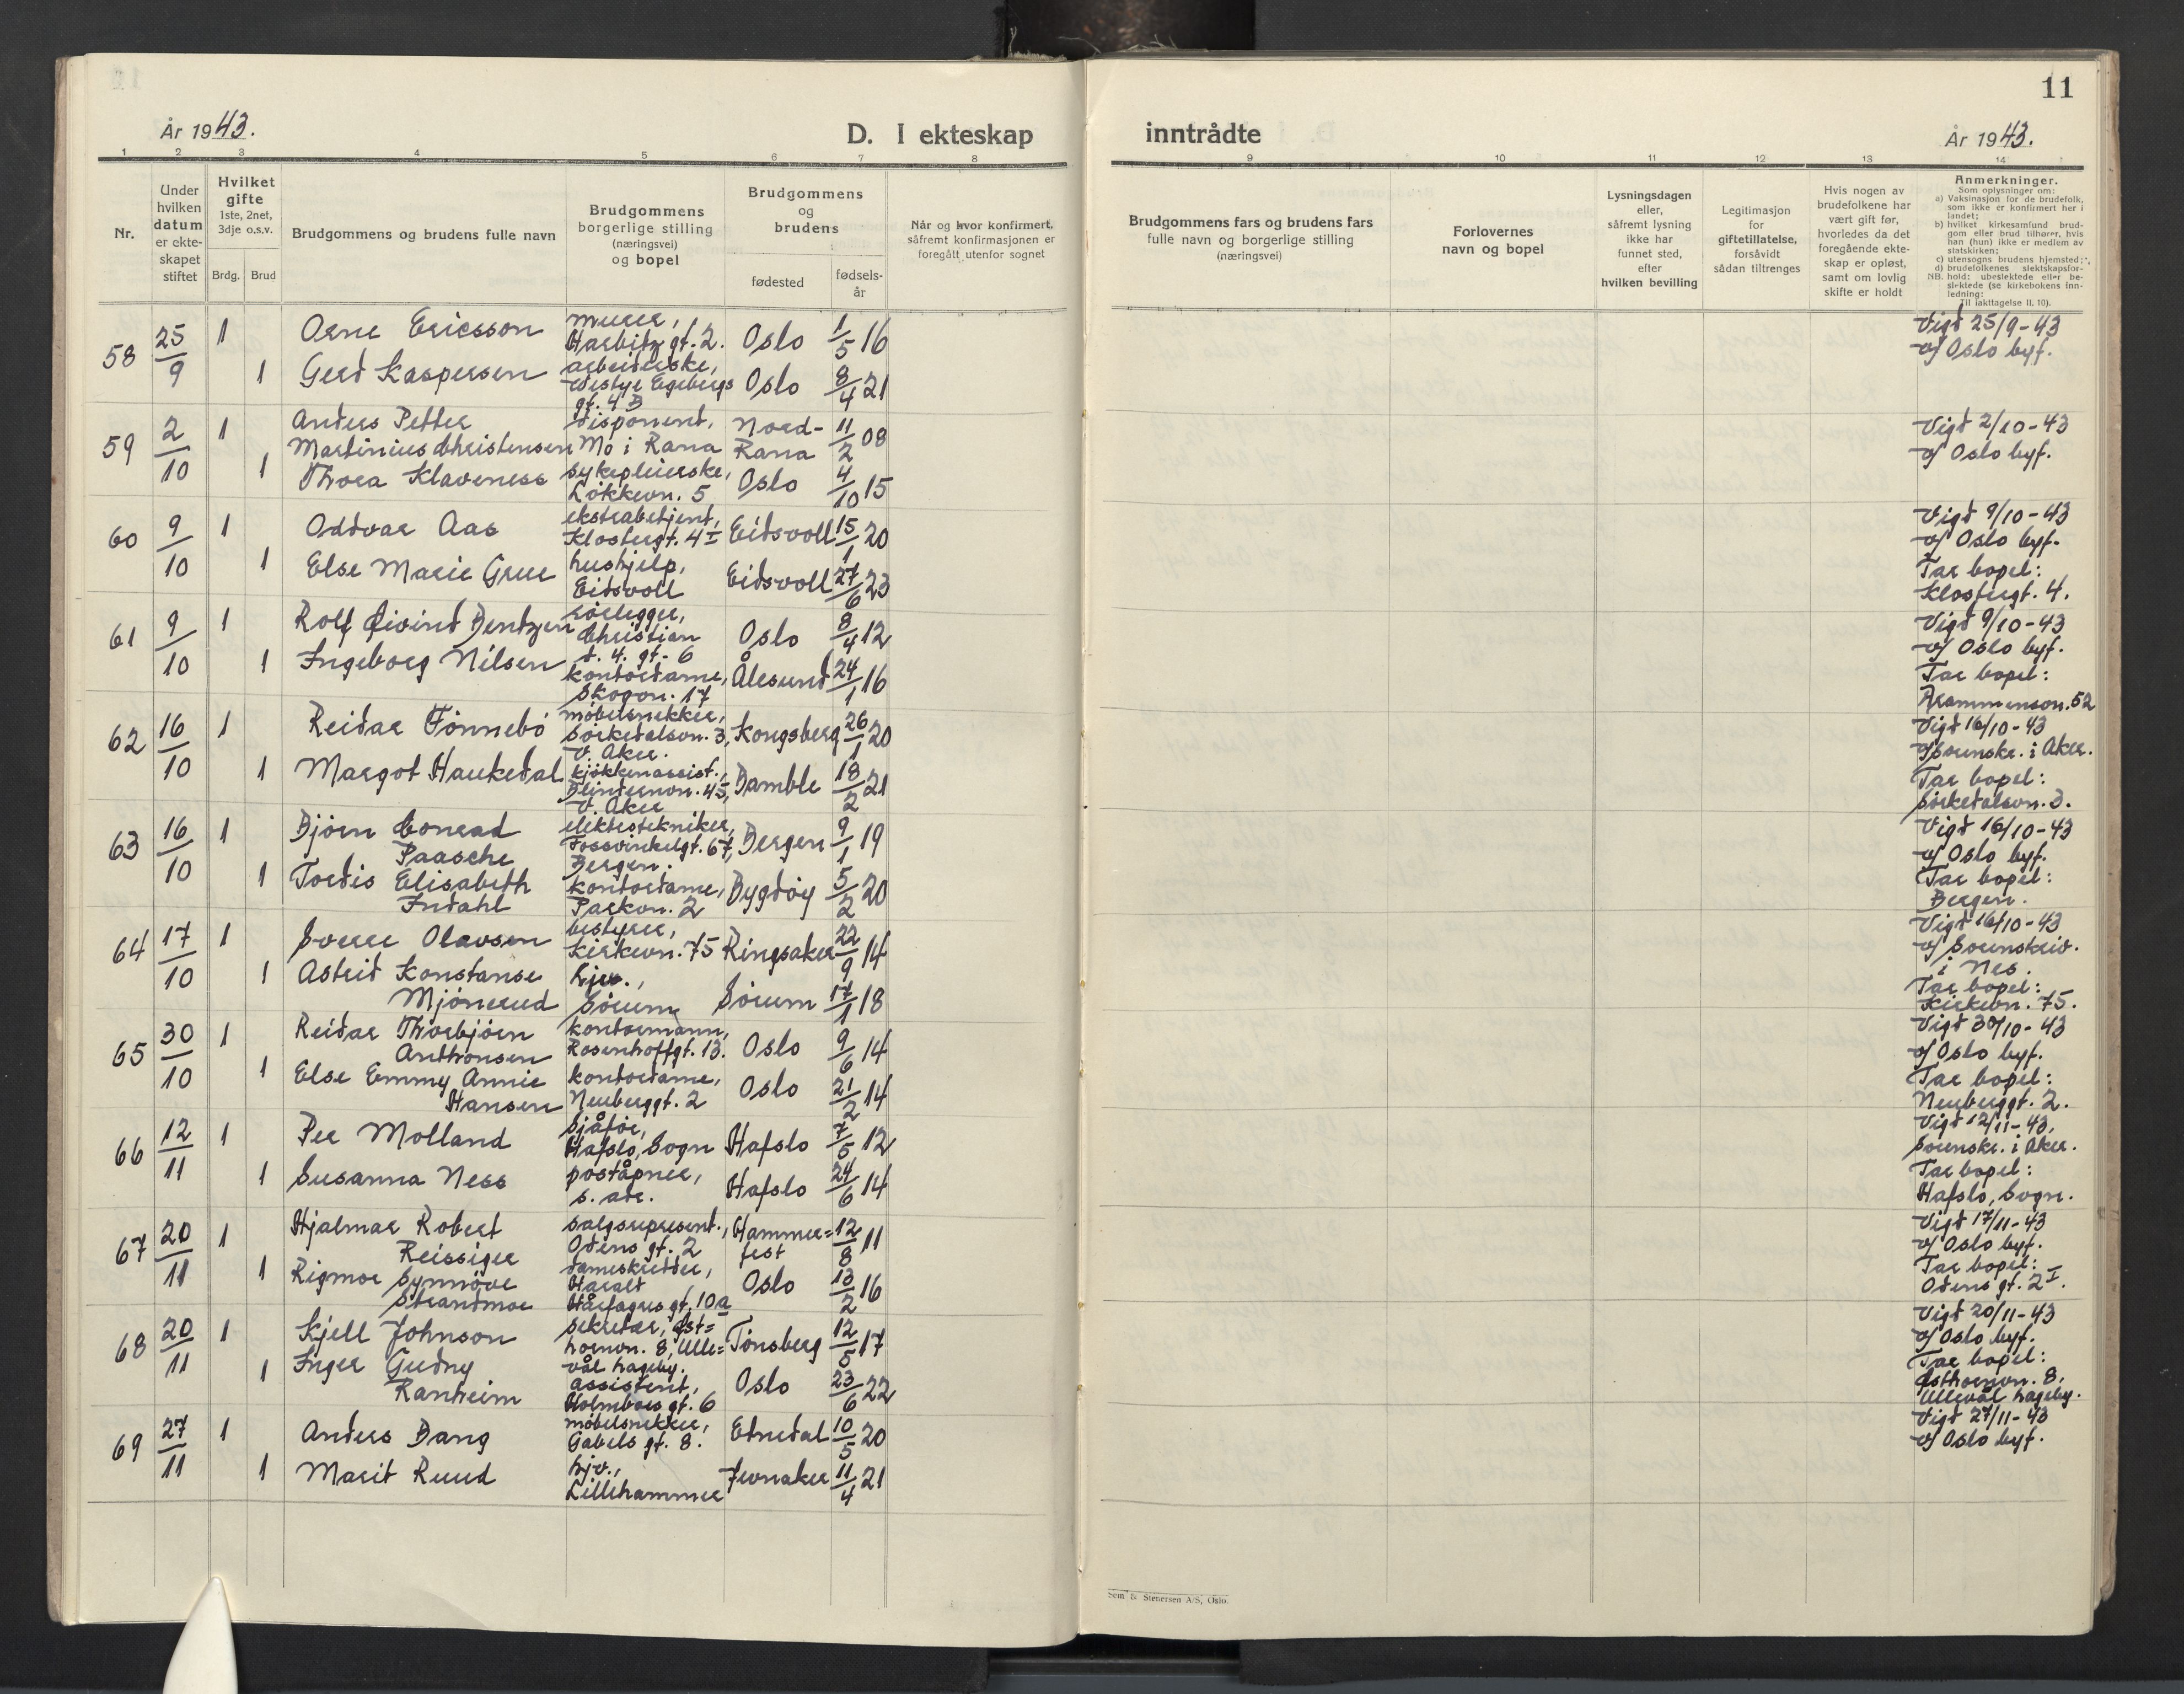 11
År 1943.
D. I ekteskap
inntrådte
År 1943.
1 2 3 4 5 6 7 8
9 10 11 12 13 14
Nr.
Under
hvilken
datum
er ekte-
skapet
stiftet
Hvilket
gifte
1ste, 2net,
3dje o.s.v.
Brdg. Brud
Brudgommens og brudens fulle navn
Brudgommens
borgerlige stilling
(næringsvei)
og bopel
Brudgommens
og
brudens
fødested
fødsels-
år
Når og hvor konfirmert,
såfremt konfirmasjonen er
foregått utenfor sognet
Brudgommens fars og brudens fars
fulle navn og borgerlige stilling
(næringsvei)
Forlovernes
navn og bopel
Lysningsdagen
eller,
såfremt lysning
ikke har
funnet sted,
efter
hvilken bevilling
Legitimasjon
for
giftetillatelse,
forsåvidt
sådan tiltrenges
Hvis nogen av
brudefolkene har
vært gift før,
hvorledes da det
foregående ekte-
skap er opløst,
samt om lovlig
skifte er holdt
Anmerkninger.
Som oplysninger om:
a) Vaksinasjon for de brudefolk,
som ikke er konfirmert her i
landet;
b) hvilket kirkesamfund brud-
gom eller brud tilhører, hvis
han (hun) ikke er medlem av
statskirken;
c) utensogns brudens hjemsted;
d) brudefolkenes slektskapsfor-
NB. hold: ubeslektede eller be-
slektede (se kirkebokens inn-
ledning:
Til iakttagelse II, 10).
58 25/9 1 Arne Ericsson murer,
Harbitz gt. 2. Oslo 1/5 16
1 Gerd Kaspersen arbeiderske,
Westye Egebergs
gt. 4 B Oslo 8/4 21
Vigd 25/9-43
v/ Oslo byf.
59 2/10 1 Anders Petter
Martinius Christensen disponent,
Mo i Rana Nord-
Rana 11/2 08
1 Thora Klaveness sykepleierske,
Løkkevn. 5 Oslo 4/10 15
Vigd 2/10-43
v/ Oslo byf.
60 9/10 1 Oddvar Aas ekstrabetjent,
Klostergt. 4 I Eidsvoll 15/1 20
1 Else Marie Grue hushjelp,
Eidsvoll Eidsvoll 27/6 23
Vigd 9/10-43
v/ Oslo byf.
Tar bopel:
Klostergt. 4.
61 9/10 1 Rolf Eivind Bentzen rørlegger,
Christian
d. 4. gt. 6 Oslo 8/4 12
1 Ingeborg Nilsen kontordame,
Skogvn. 17 Ålesund 24/1 16
Vigd 9/10-43
v/ Oslo byf.
Tar bopel:
Drammensvn. 52
62 16/10 1 Reidar Tønnebö møbelsnekker,
Sørkedalsvn. 3,
V. Aker. Kongsberg 26/1 20
1 Margot Haukedal kjøkkenassist.,
Blindernvn. 45,
V. Aker Bamble 18/2 21
Vigd 16/10-43
v/ Sorenskr. i Aker.
Tar bopel:
Sørkedalsvn. 3.
63 16/10 1 Bjørn Conrad
Paasche elektrotekniker,
Fosswinkelgt. 67,
Bergen. Bergen 9/1 19
1 Tordis Elisabeth
Indahl kontordame,
Parkvn. 2 Bygdøy 5/2 20
Vigd 16/10-43
v/ Oslo byf.
Tar bopel:
Bergen.
64 17/10 1 Sverre Olavsen bestyrer,
Kirkevn. 75 Ringsaker 22/9 14
1 Astrid Konstanse
Mjönerud hjv.,
Sørum Sørum 17/1 18
Vigd 16/10-43
v/ Sorenskriv.
i Nes.
Tar bopel:
Kirkevn. 75.
65 30/10 1 Reidar Thorbjörn
Anthonsen kontormann,
Rosenhoffgt. 13. Oslo 9/6 14
1 Else Emmy Annie
Hansen kontordame,
Neuberggt. 2 Oslo 21/2 14
Vigd 30/10-43
v/ Oslo byf.
Tar bopel:
Neuberggt. 2.
66 12/11 1 Per Molland sjåfør,
Hafslo, Sogn Hafslo 7/5 12
1 Susanna Ness poståpner,
s. adr. Hafslo 24/6 14
Vigd 12/11-43,
Sorenskr. i Aker.
Tar bopel:
Hafslo, Sogn.
67 20/11 1 Hjalmar Robert
Reissiger salgsrepresent.,
Odens gt. 2 Hammer=
fest 12/8 11
1 Rigmor Synnöve
Strandmoe dameskredder,
Harald
Hårfagres gt. 10a Oslo 13/2 16
Vigd 17/11-43
v/ Oslo byf.
Tar bopel:
Odens gt. 2 I.
68 20/11 1 Kjell Johnson sekretær, Øst=
hornvn. 8, Ulle=
vål hageby. Tønsberg 12/5 17
1 Inger Gudny
Ranheim assistent,
Holmboes gt. 6 Oslo 23/6 22
Vigd 20/11-43
v/ Oslo byf.
Tar bopel:
Østhornvn. 8,
Ullevål hageby.
69 27/11 1 Anders Bang møbelsnekker,
Gabels gt. 8. Etnedal 10/5 20
1 Marit Ruud hjv.,
Lillehammer Jevnaker 11/4 21
Vigd 27/11-43
v/ Oslo byf.
Sem & Stenersen A/S, Oslo.